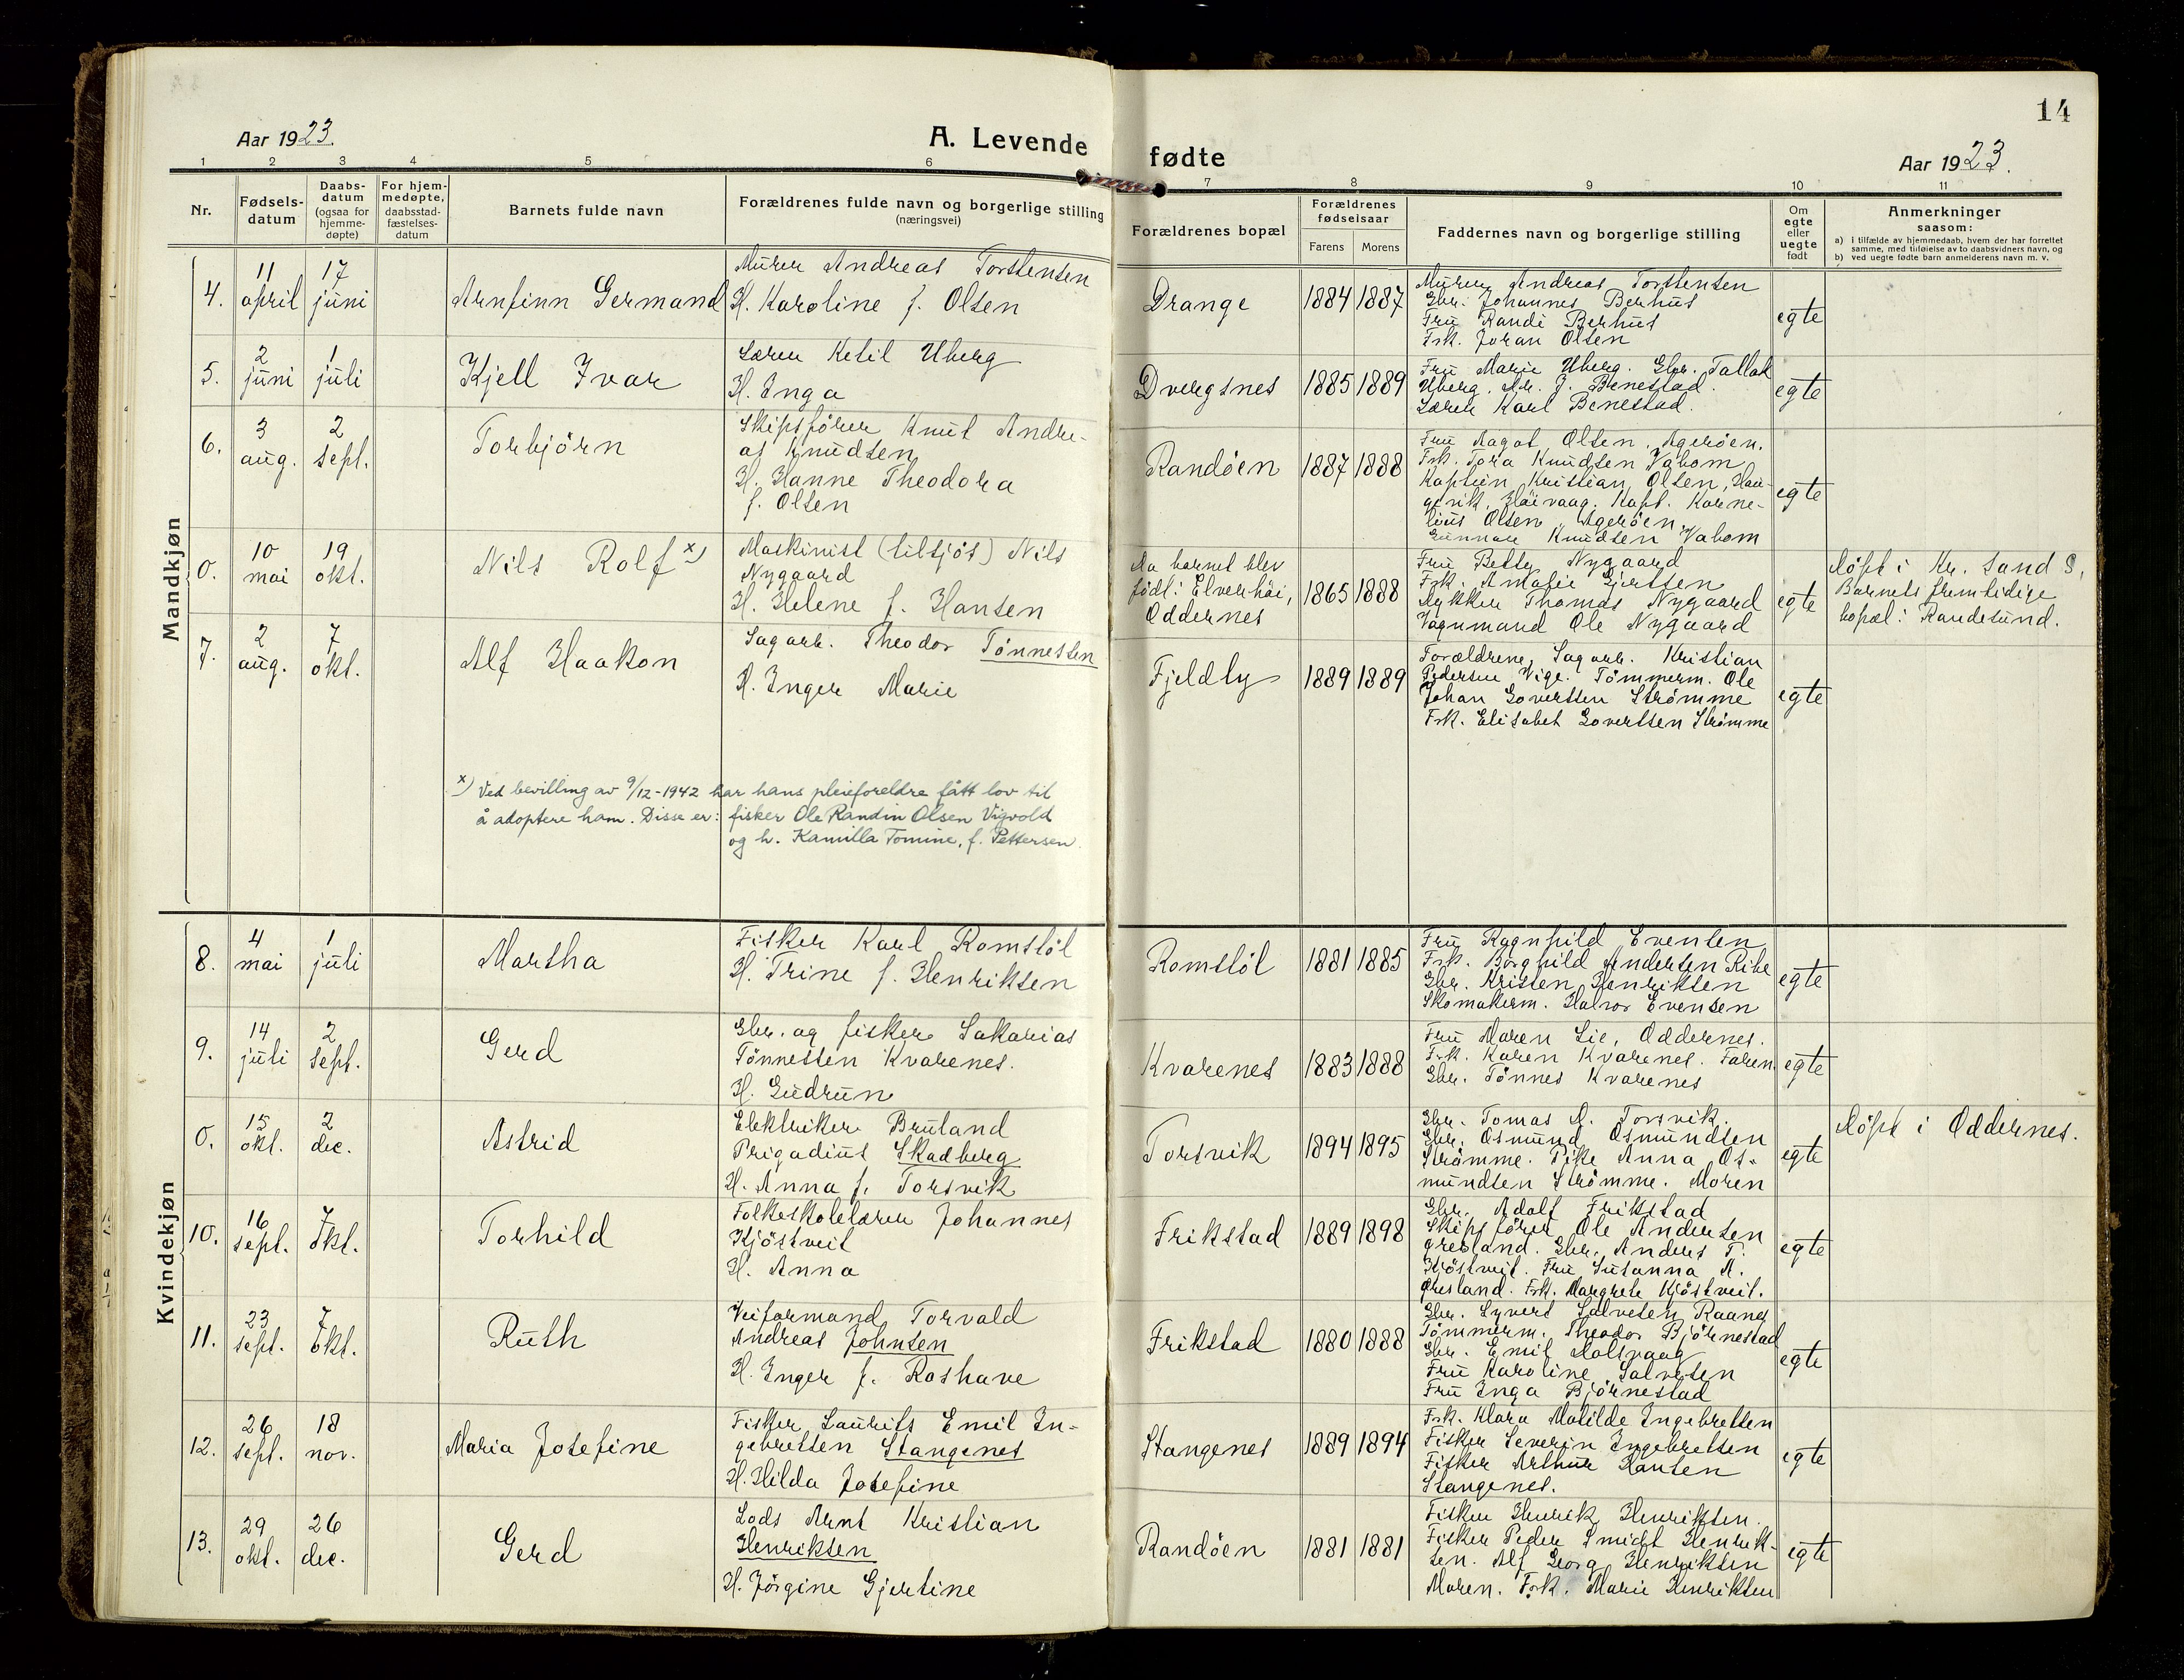 14
Aar 1923.
A. Levende fødte
Aar 1923.
1 2 3 4 5 6 7 8 9 10 11
Nr.
Fødsels-
datum
Daabs-
datum
(ogsaa for
hjemme-
døpte)
For hjem-
medøpte,
daabsstad-
fæstelses-
datum
Barnets fulde navn
Forældrenes fulde navn og borgerlige stilling
(næringsvei)
Forældrenes bopæl
Forældrenes
fødselsaar
Farens Morens
Faddernes navn og borgerlige stilling
Om
egte
eller
uegte
født
Anmerkninger
saasom:
a) i tilfælde av hjemmedaab, hvem der har forrettet
samme, med tilføielse av to daabsvidners navn, og
b) ved uegte fødte barn anmelderens navn m. v.
Mandkjøn
4.
11
april
17
juni
Arnfinn Germand
Murer Andreas Torstensen
H. Karoline f. Olsen
Drange
1884 1887
Murer Andreas Torstensen
Gbr. Johannes Berhus
Fru Randi Berhus
Frk. Joran Olsen
egte
5.
2
juni
1
juli
Kjell Ivar
Lærer Ketil Uberg
H. Inga
Dvergsnes
1885 1889
Fru Marie Uberg. Gbr. Tallak
Uberg. J. Benestad.
Lærer Karl Benestad.
egte
6.
3
aug.
2
sept.
Torbjörn
Skipsförer Knut Andre-
as Knudsen
H. Hanne Theodora
f. Olsen
Randöen
1887 1888
Fru Aagot Olsen, Ageröen.
Frk. Tora Knudsen Vabom
Kaptein Kristian Olsen,
Höivaag. Kapt. Karne-
lius Olsen, Ageröen.
Gunnar Knudsen Vabom
egte
0.
10
mai
19
okt.
Nils Rolf x)
Maskinist (tilsjøs) Nils
Nygaard
H. Helene f. Hansen
Da barnet blev
født: Elverhöi,
Oddernes
1865 1888
Fru Betty Nygaard
Frk. Amalie Gjertsen
Thomas Nygaard
Vognmand Ole Nygaard
egte
Döpt i Kr. sand S.
Barnets fremtidige
bopæl: Randesund.
7.
2
aug.
7
okt.
Alf Haakon
Sagarb. Theodor Tönnessen
H. Inger Marie
Fjeldly
1889 1889
Forældrene, Sagarb. Kristian
Pedersen Vige. Tömmerm. Ole
Johan Govertsen Strömme
Frk. Elisabet Govertsen Strömme
egte
x) Ved bevilling av 9/12-1942 har hans pleieforeldre fått lov til
å adoptere ham. Disse er: fisker Ole Randin Olsen Vigvold
og h. Kamilla Tomine, f. Pettersen.
Kvindekjøn
8.
4
mai
1
juli
Martha
Fisker Karl Romslöl
H. Trine f. Henriksen
Romslöl
1881 1885
Fru Ragnhild Evensen
Frk. Borghild Andersen Ribe
Gbr. Kristen Henriksen
Skomakerm. Halvor Evensen
egte
9.
14
juli
2
sept.
Gerd
Gbr. og fisker Sakarias
Tönnessen Kvarenes.
H. Gudrun
Kvarenes
1883 1888
Fru Maren Lie, Oddernes.
Frk. Karen Kvarenes. Faren
Gbr. Tönnes Kvarenes
egte
0.
15
okt.
2
dec.
Astrid
Elektriker Bruland
Prigadius Skadberg
H. Anna f. Torsvik
Torsvik
1894 1895
Gbr. Tomas A. Torsvik.
Gbr. Osmund Osmundsen
Strömme. Pike Anna Os-
mundsen Strömme. Moren
egte
Döpt i Oddernes.
10.
16
sept.
7
okt.
Torhild
Folkeskolelærer Johannes
Kjöstveit
H. Anna
Frikstad
1889 1898
Gbr. Adolf Frikstad
Skipsförer Ole Andersen
Gresland. Gbr. Anders T.
Kjöstveit. Fru Susanna A.
Gresland. Frk. Margrete Kjöstveit.
egte
11.
23
sept.
7
okt.
Ruth
Veiformand Torvald
Andreas Johnsen
H. Inger f. Roshave
Frikstad
1880 1888
Gbr. Syvert Salvesen Raanes
Tömmerm. Theodor Björnestad
Gbr. Emil
Fru Karoline Salvesen
Fru Inga Björnestad
egte
12.
26
sept.
18
nov.
Maria Josefine
Fisker Laurits Emil In-
gebretsen Stangenes
H. Hilda Josefine
Stangenes
1889 1894
Frk. Klara Matilde Ingebretsen
Fisker Severin Ingebretsen
Fisker Arthur Hansen
Stangenes.
egte
13.
29
okt.
26
dec.
Gerd
Lods Arnt Kristian
Henriksen
H. Jörgine Gjertine
Randöen
1881 1881
Fisker Henrik Henriksen.
Fisker Peder Smidt Henrik-
sen. Alf Georg Henriksen
Moren. Frk. Marie Henriksen
egte